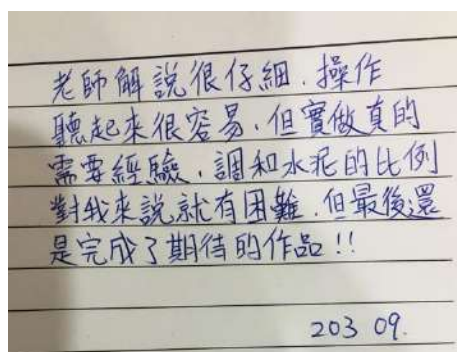 老師解說很仔細、操作
聽起來很容易、但實做真的
需要經驗、調和水泥的比例
對我來說就有困難、但最後還
是完成了期待的作品!!
203 09.